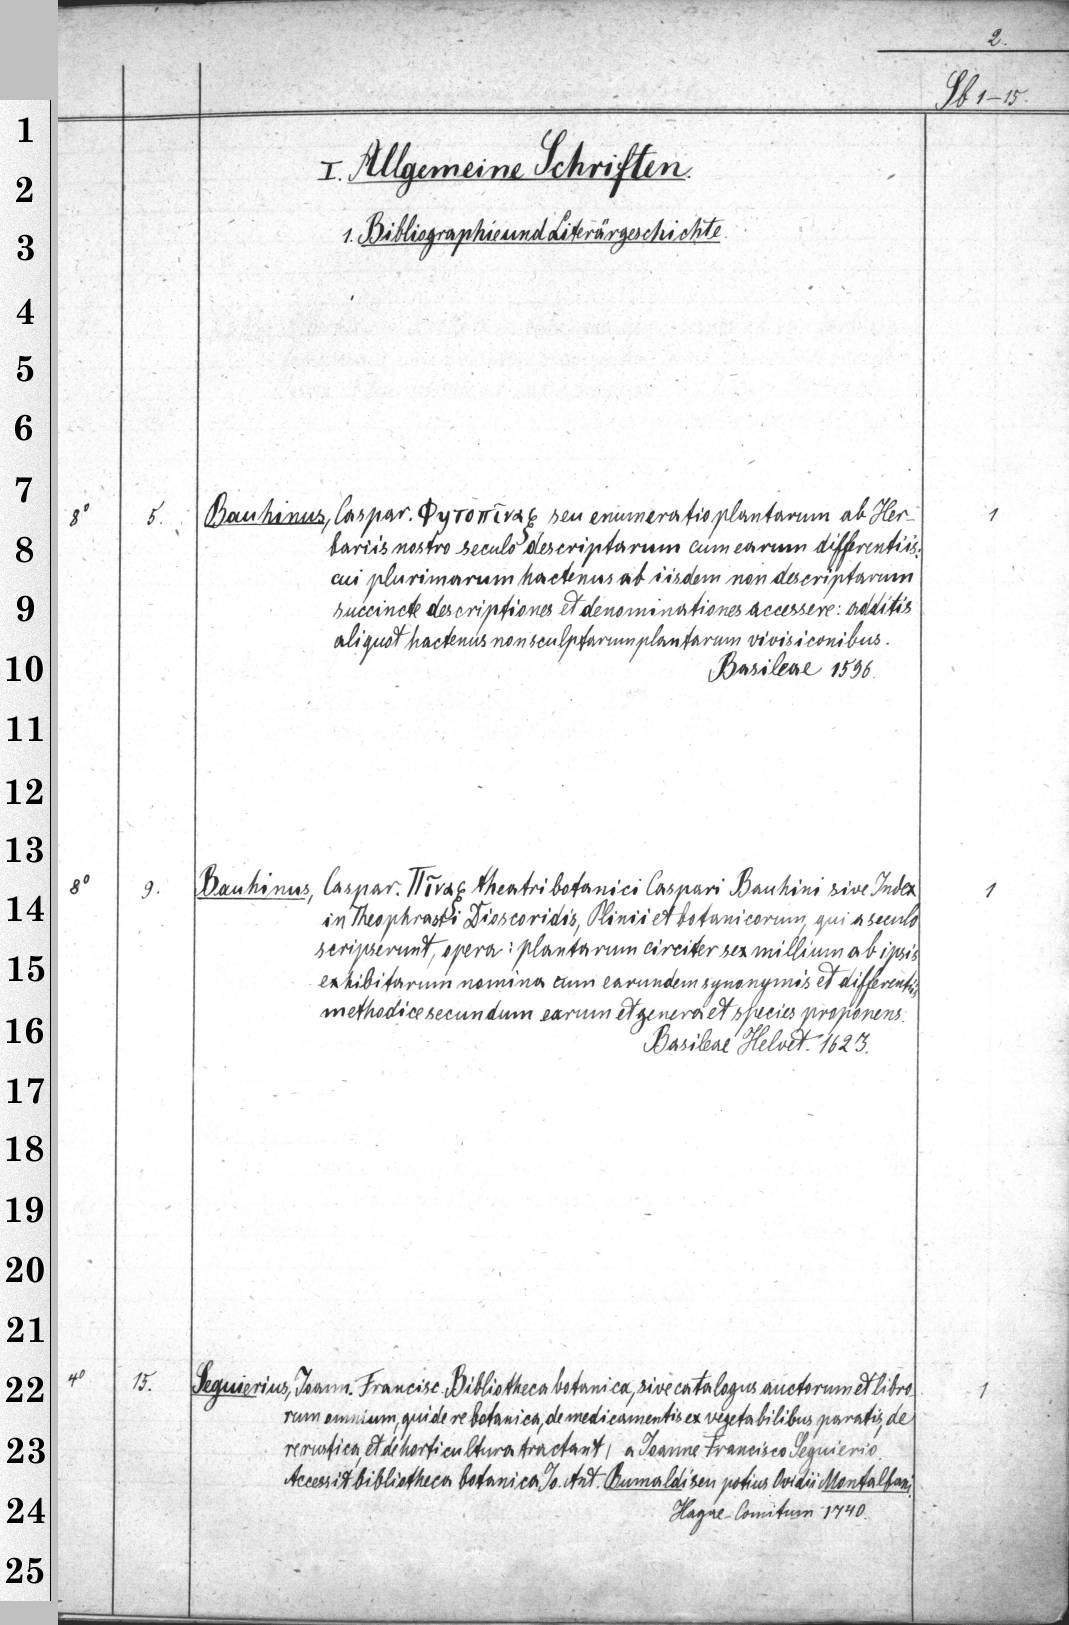 2.
Sb 1-15.
I. Allgemeine Schriften.
1. Bibliographie und Literärgeschichte.
8° 5. Bauhinus, Caspar. Φυτοπίναξ seu enumeratio plantarum ab Her- 1
bariis nostro seculo descriptarum cum earum differentiis:
cui plurimarum hactenus ab iisdem non descriptarum
succincte descriptiones et denominationes accessere: additis
aliquot hactenus non sculptarum plantarum vivis iconibus.
Basileae 1596.
8° 9. Bauhinus, Caspar. Πίναξ theatri botanici Caspari Bauhini sive Index 1
in Theophrasti Dioscoridis, Plinii et botanicorum, qui a seculo
scripserunt, opera: plantarum circiter sex millium ab ipsis
exhibitarum nomina cum earundem synonymis et differentiis
methodice secundum earum et genera et species proponens.
Basileae Helvet. 1623.
4° 15. Seguierius, Joann. Francisc. Bibliotheca botanica, sive catalogus auctorum et libro 1
rum omnium, qui de re botanica, de medicamentis ex vegetabilibus paratis, de
re rustica, et de horticultura tractant, a Joanne Francisco Seguierio
Accessit bibliotheca botanica Jo. Ant. Bumaldi seu potius Ovidii Montalbani.
Hagae-Comitum 1740.
1
2
3
4
5
6
7
8
9
10
11
12
13
14
15
16
17
18
19
20
21
22
23
24
25